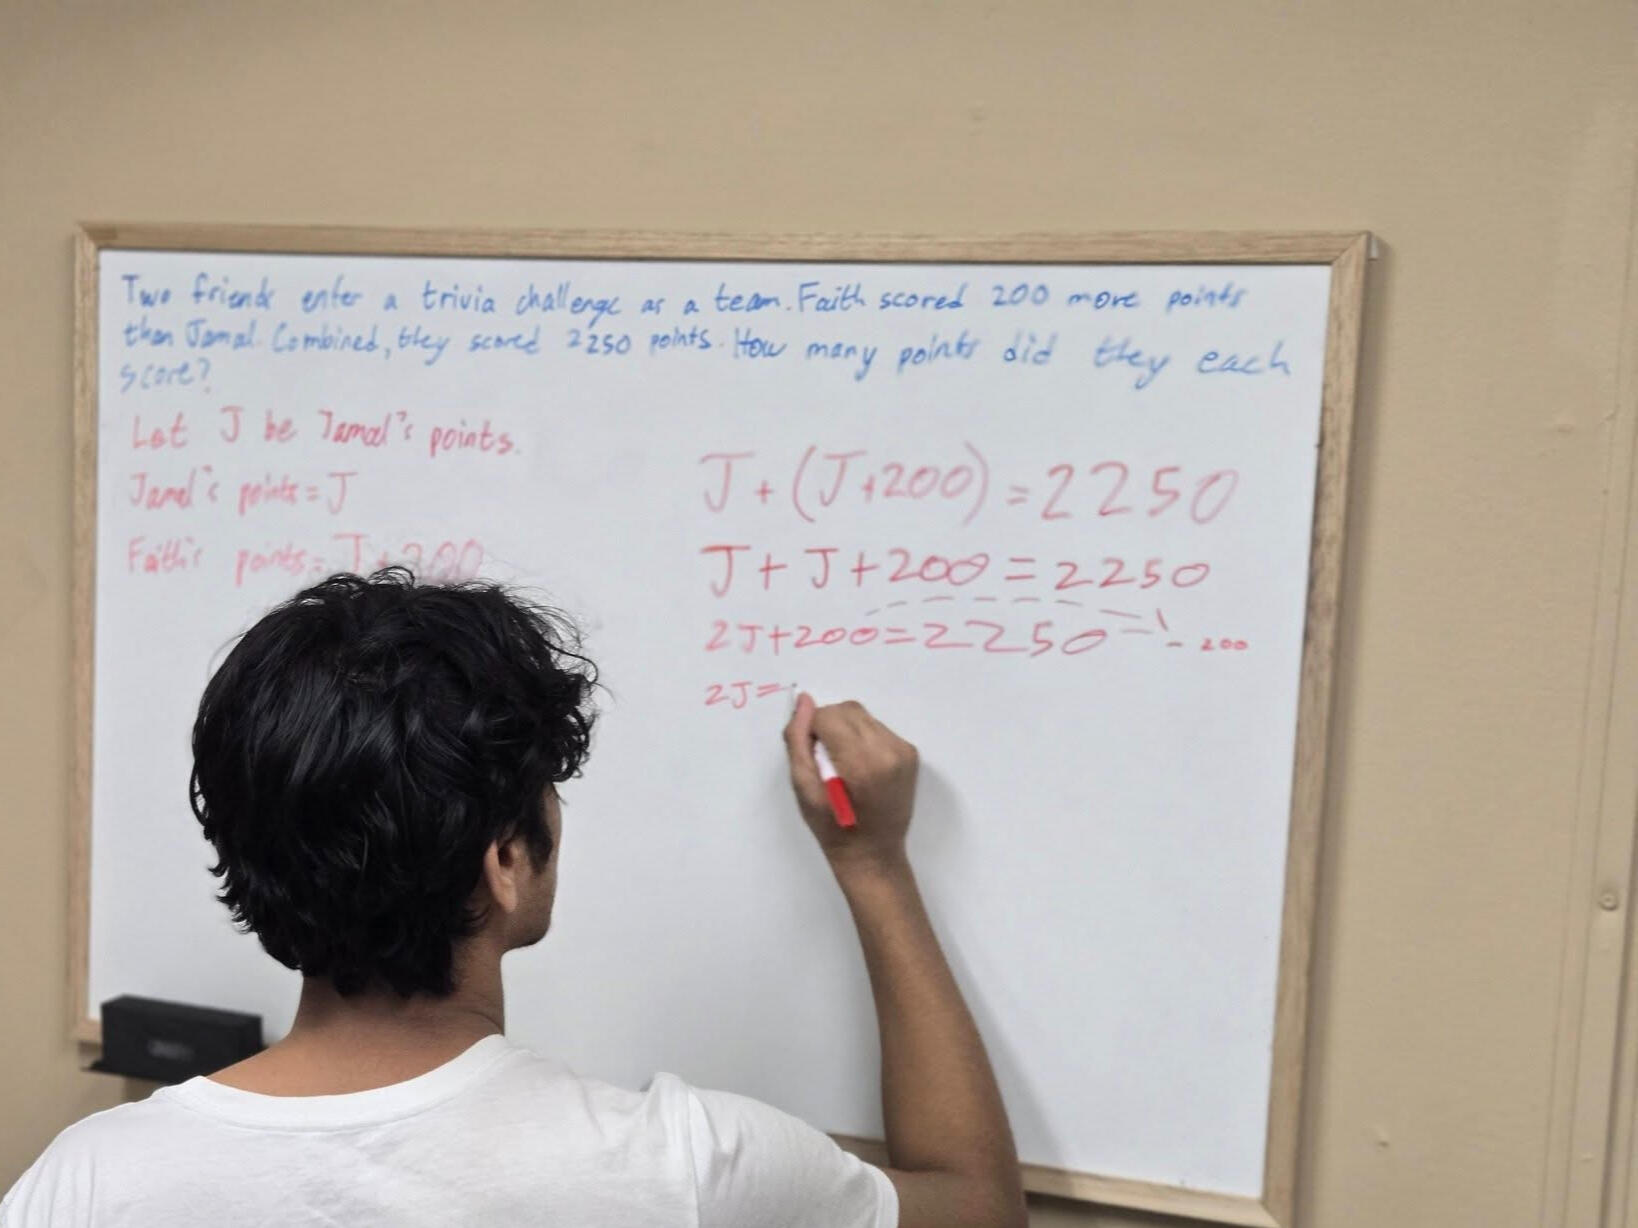 Two friends enter a trivia challenge as a team. Faith scored 200 more points
than Jamal. Combined, they scored 2250 points. How many points did they each
score?
Let J be Jamal's points.
Jamal's points = J
Faith's points = J + 200
J + (J+200) = 2250
J + J + 200 = 2250
2J+200=2250 - 200
2J=